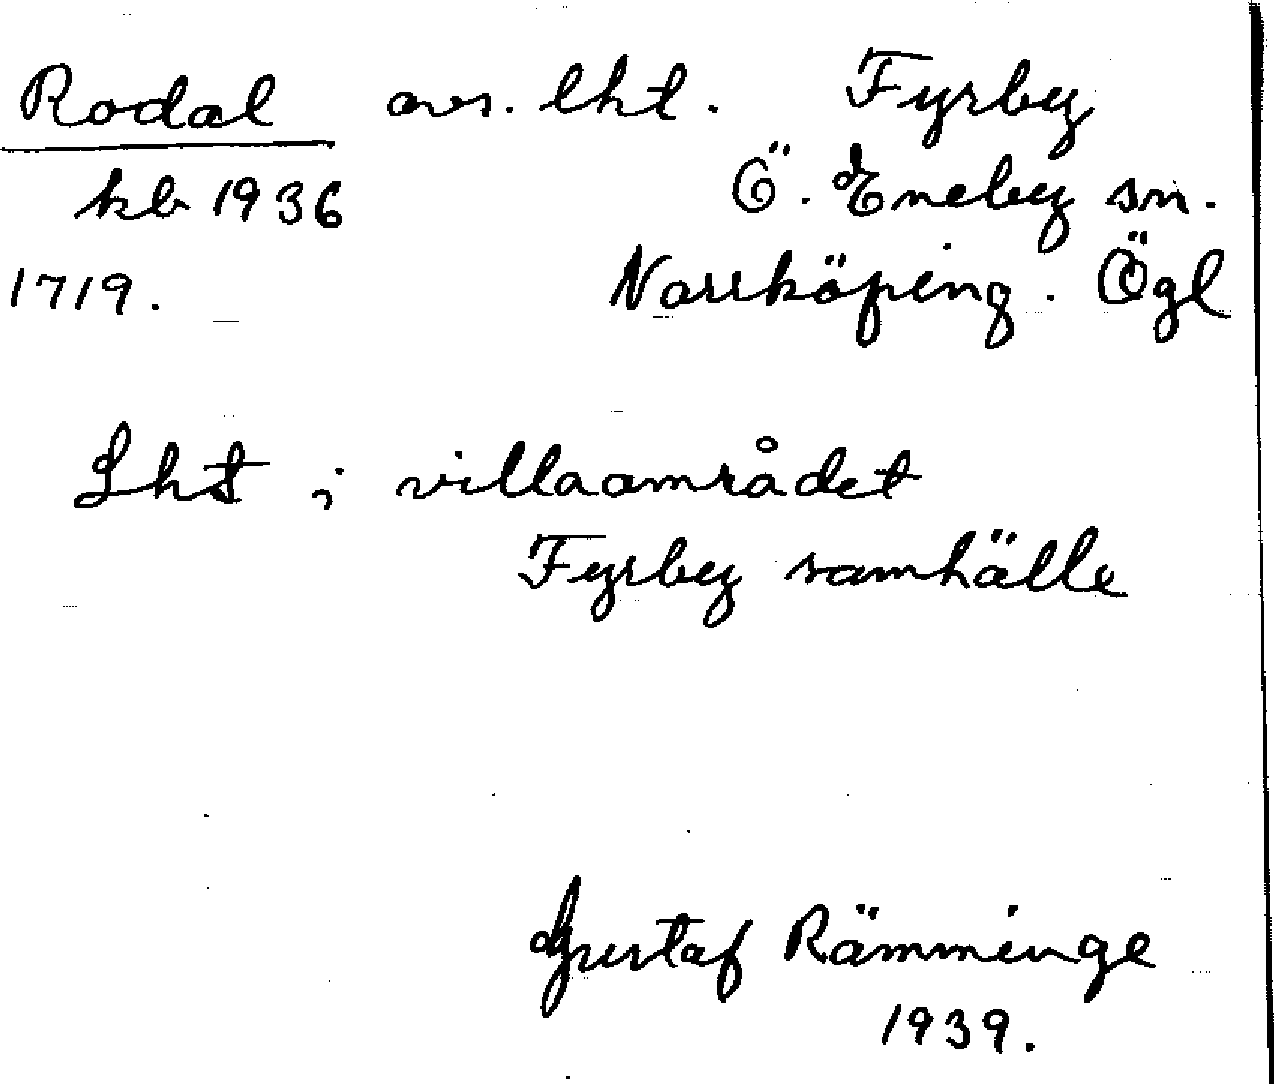 Rodal avs. lht. Fyrby
kb 1936 Ö. Eneby sn.
1719. Norrköping. Ögl
Lht i villaområdet
Fyrby samhälle
Gustaf Rämminge
1939.